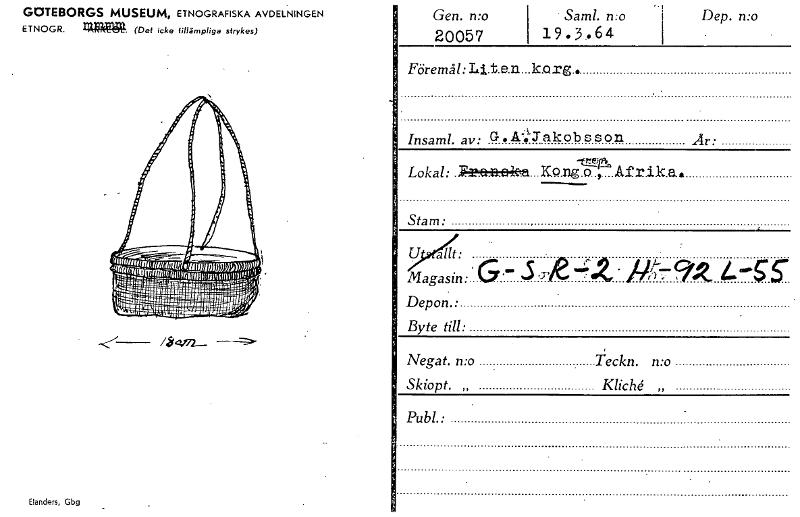 GÖTEBORGS MUSEUM, ETNOGRAFISKA AVDELNINGEN
ETNOGR. ARKEOL. (Det icke tillämpliga strykes)
18 cm
Elanders, Gbg
Gen. n:o Saml. n:o Dep. n:o
20057 19.3.64
Föremål: Liten korg.
Insaml. av: G.A. Jakobsson År:
Lokal: Franska Kongo, Afrika.
Stam:
Utställt:
Magasin: G-S R-2 H-92 L-55
Depon.:
Byte till:
Negat. n:o Teckn. n:o
Skiopt. „ Kliché „
Publ.: